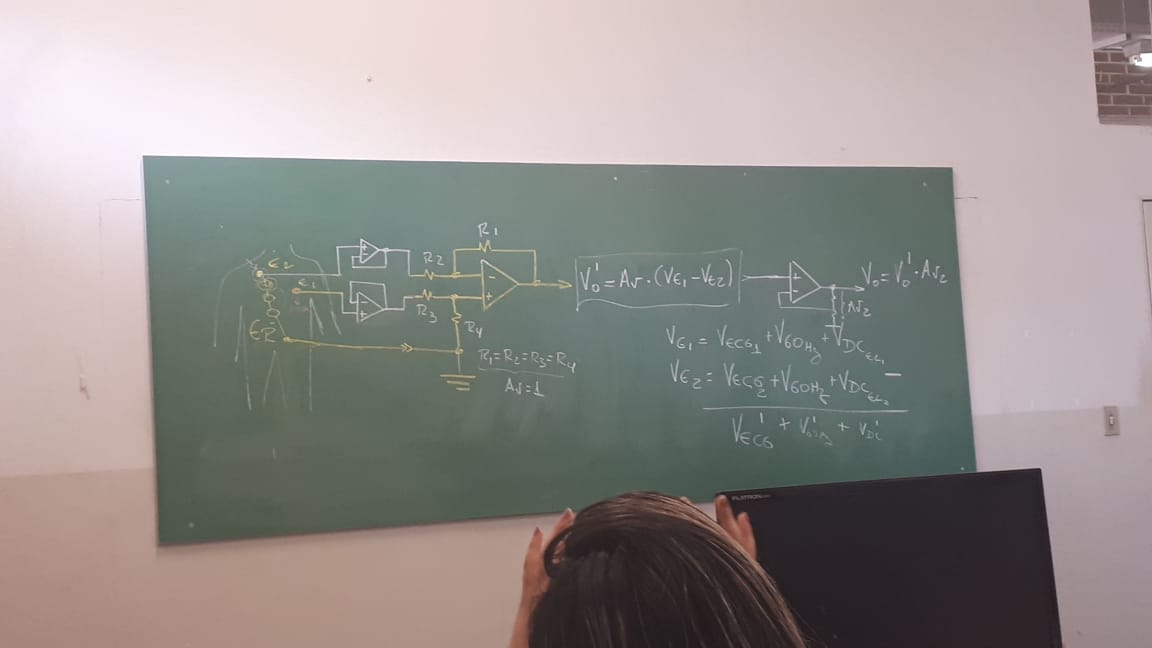 R1
E2
E1
R2
R3
R4
ER
R1=R2=R3=R4
Av=1
V0' = Av · (VE1 - VE2)
V0 = V0' · Av2
Av2
VE1 = VECG1 + V60Hz + VDC EL1
VE2 = VECG2 + V60Hz + VDC EL2
VECG' + V60Hz' + VDC'
PLATRON